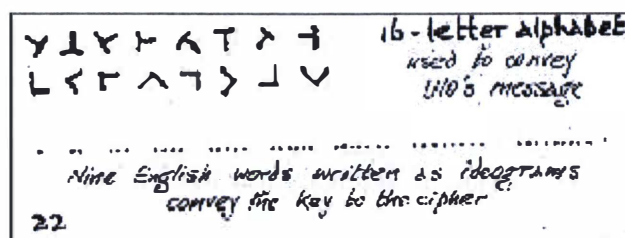 16-letter alphabet
used to convey
UFO's message
Nine English words written as ideograms
convey the key to the cipher
22